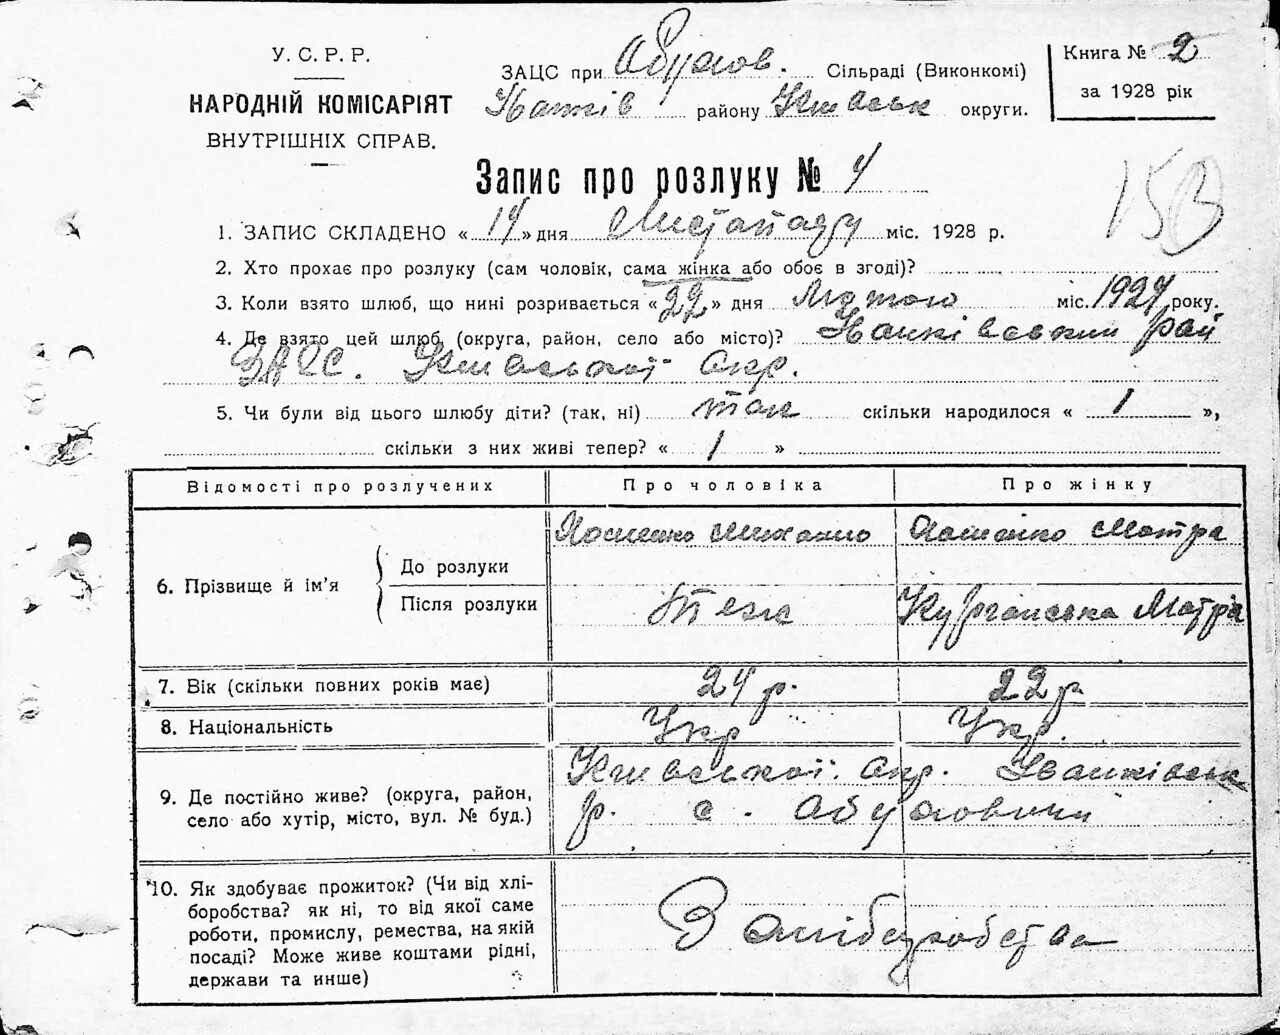 У. С. Р. Р.
НАРОДНІЙ КОМІСАРІЯТ
ВНУТРІШНІХ СПРАВ.
ЗАЦС при Абухов. Сільраді (Виконкомі)
Іванків району Київськ округи.
Книга № 2
за 1928 рік
Запис про розлуку № 4
153
1. ЗАПИС СКЛАДЕНО « 14 » дня Листопаду міс. 1928 р.
2. Хто прохає про розлуку (сам чоловік, сама жінка або обоє в згоді)?
3. Коли взято шлюб, що нині розривається « 22 » дня Лютого міс. 1927 року.
4. Де взято цей шлюб (округа, район, село або місто)? Іванківським рай
ЗАГС. Київської окр.
5. Чи були від цього шлюбу діти? (так, ні) так скільки народилося « 1 »,
скільки з них живі тепер? « 1 »
Відомості про розлучених Про чоловіка Про жінку
6. Прізвище й ім'я
До розлуки Михайло Мотря
Після розлуки теж Курганська Мотря
7. Вік (скільки повних років має) 24 р. 22 р
8. Національність Укр Укр.
9. Де постійно живе? (округа, район, село або хутір, місто, вул. № буд.) Київської. окр. Іванківськ
р. с. Абуховичі
10. Як здобуває прожиток? (Чи від хлі-
боробства? як ні, то від якої саме
роботи, промислу, ремества, на якій
посаді? Може живе коштами рідні,
держави та инше)
З хліборобства